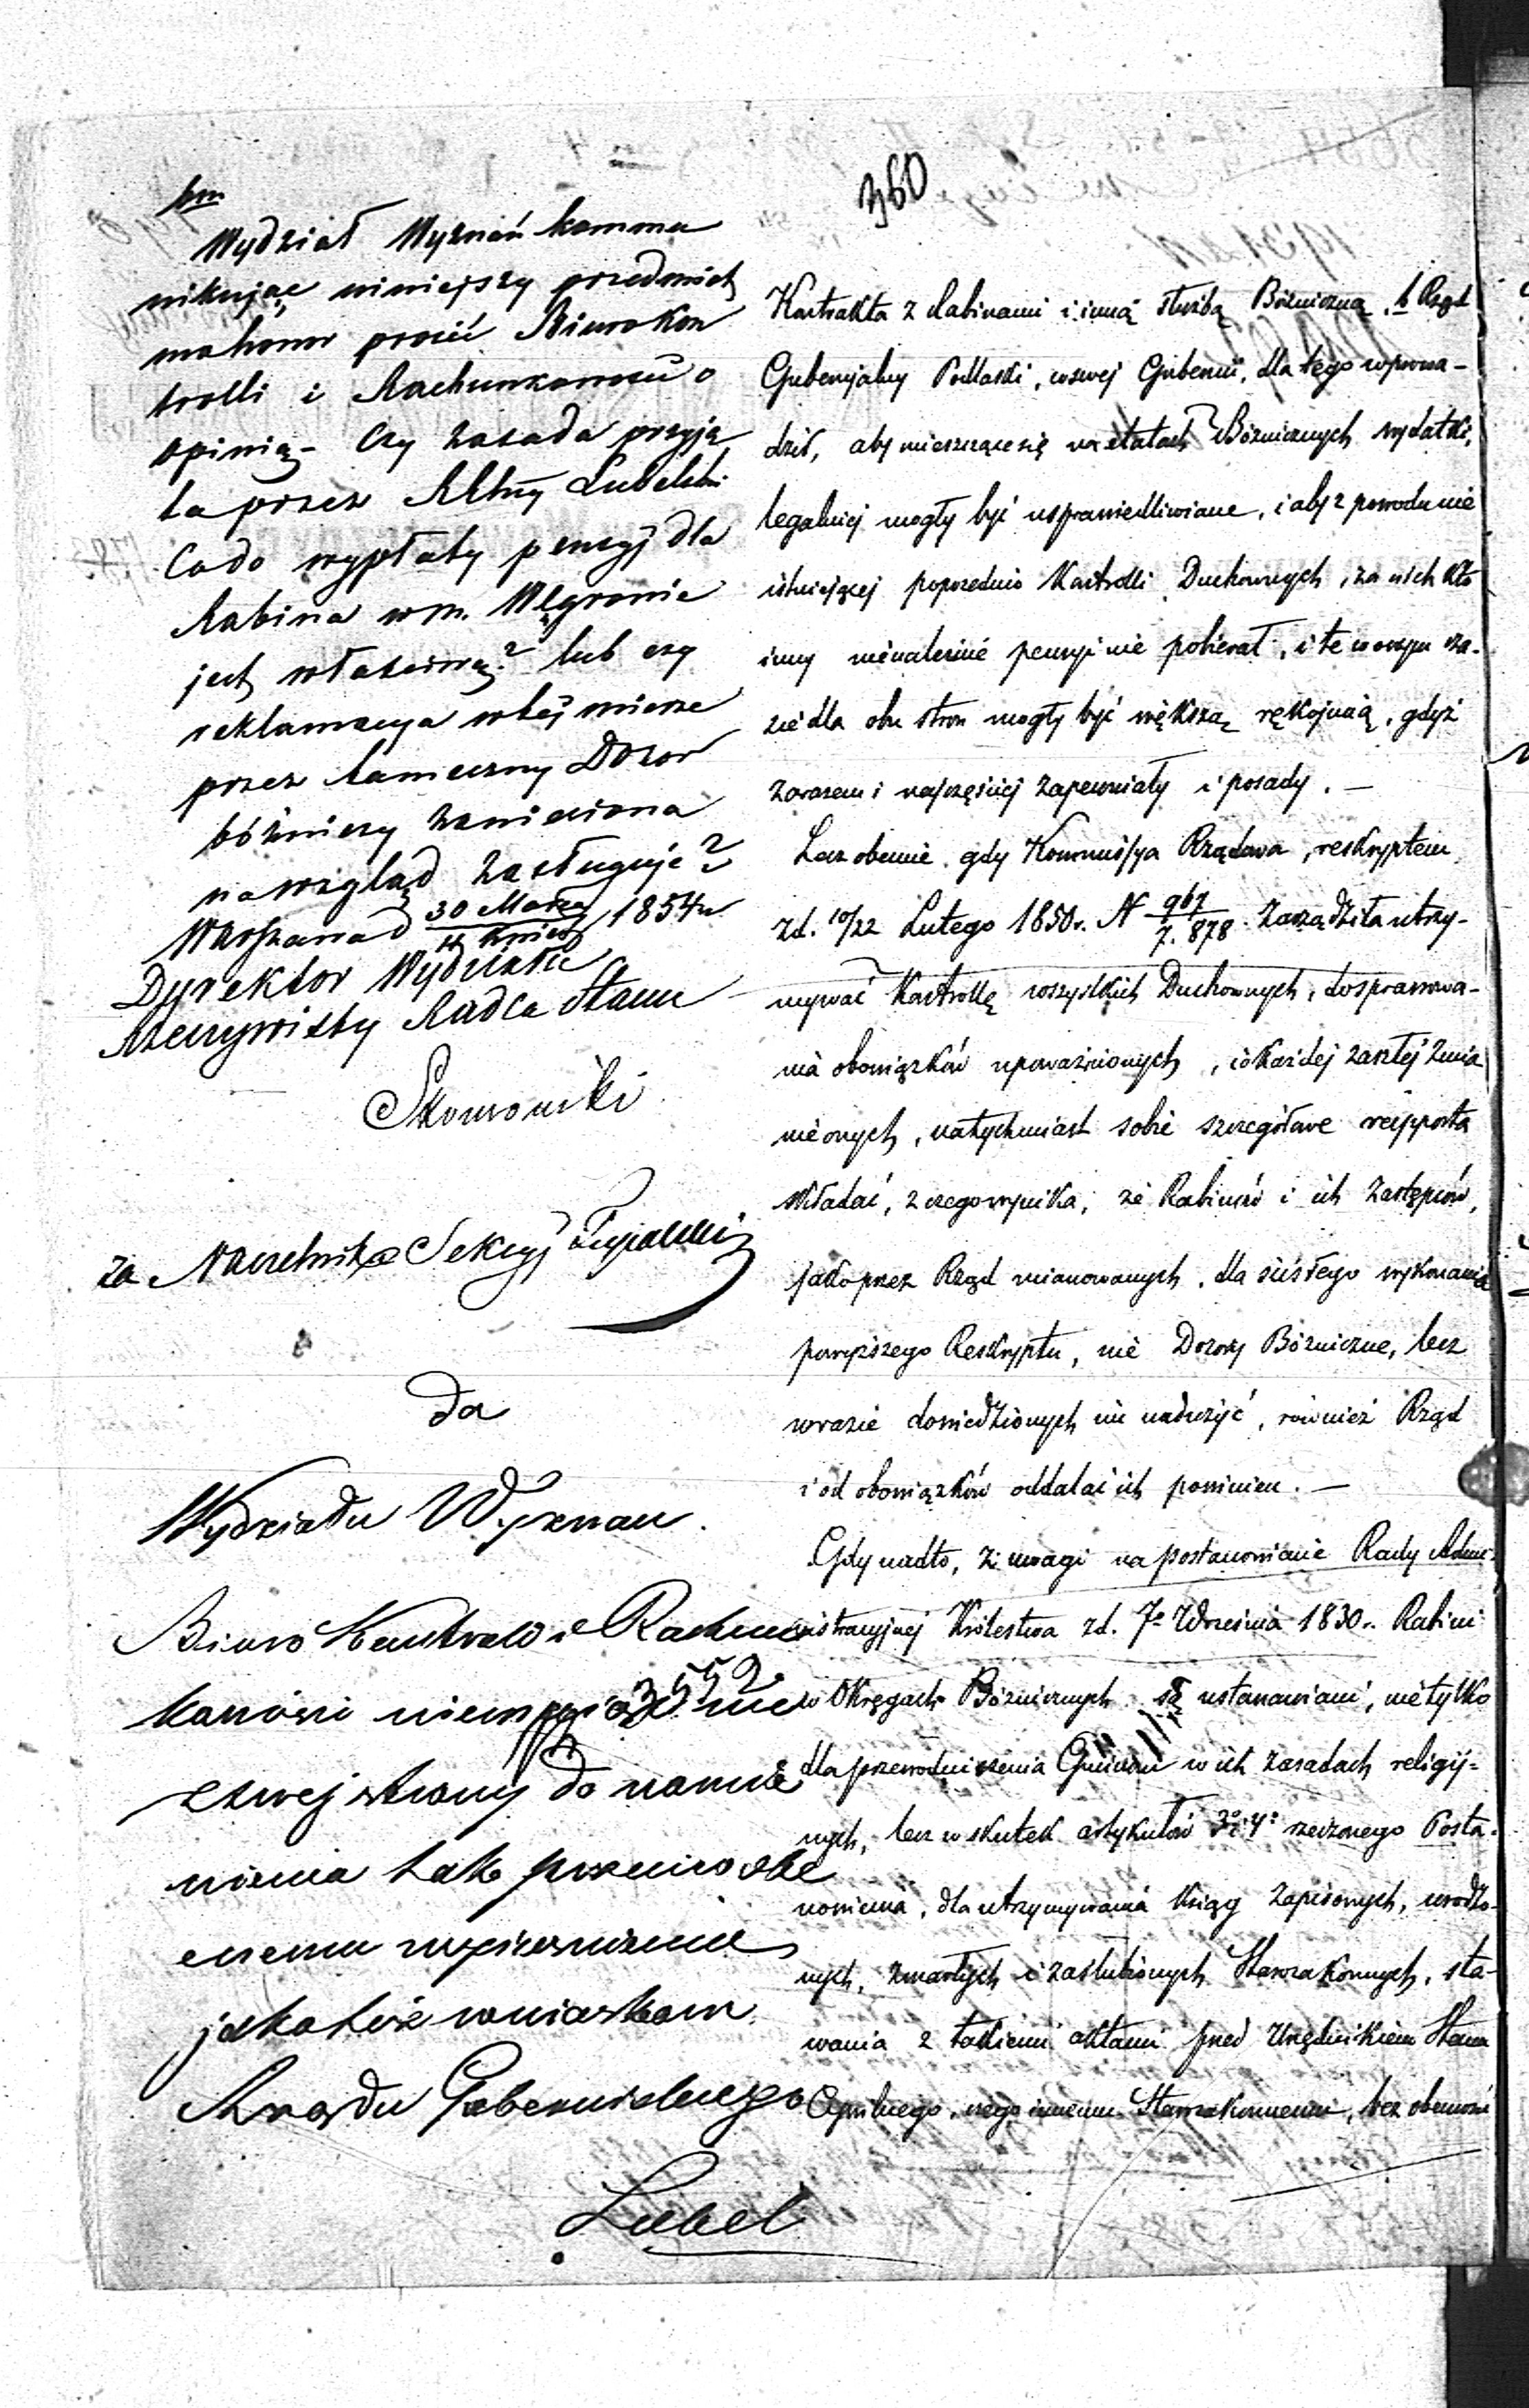 360
pm
Wydział Wyznań kommu
nikując niniejszy przedmiot
ma honor prosić Biuro Kon
trolli i Rachunkowości o
opinią - Czy zasada przyję
ta przez Lubelski
Co do wypłaty pensyj dla
Rabina w m. Węgrowie
jest właściwą? lub czy
reklamacya w tej mierze
przez tameczny Dozor
bóżniczy zaniesiona
na wzgląd zasługuje?
Warszawa d 30 Marca 1854 r
Dyrektor Wydziału
Rzeczywisty Radca Stanu
za Naczelnika Sekcyj
Do
Wydziału Wyznań.
Biuro Kontroli i Rachun
kowości nie
3552
z swej strony do nama
nienia tak
jako też wnioskom
Rządu Gubernialnego
Lubel
Kontrakta z Rabinami i inną służbą Bóżniczną, b Rząd
Gubernjalny Podlaski, w swej Gubernii, dla tego wprowa-
dził, aby mieszczące się na etatach Bóżnicznych wydatki,
legalniej mogły być usprawiedliwiane, i aby z powodu nie
istniejącej poprzednio Kontrolli Duchownych, za nich kto
inny nienależnie pensyi nie pobierał, i te w owym cza-
sie dla obu stron mogły być większą rękojmią, gdyż
zarazem i najczęściej zapewniały i posady. —
Lecz obecnie, gdy Kommissya Rządowa, reskryptem
z d. 10/22 Lutego 1850 r. N 967/7.878 zarządziła utrzy-
mywać Kontrollę wszystkich Duchownych, do sprawowa-
nia obowiązków upoważnionych, i o każdej zaszłej zmia
nie onych, natychmiast sobie szczegółowe rapporta
składać, z czego wynika, że Rabinów i ich zastępców,
jako przez Rząd mianowanych, dla ścisłego wykonania
powyższego Reskryptu, nie Dozory Bóżniczne, lecz
w razie dowiedzionych im nadużyć, również Rząd
i od obowiązków oddalać ich powinien. —
Gdy nadto, z uwagi na postanowienie Rady Admi-
nistracyjnej Królestwa z d. 7o Września 1830 r. Rabini
w Okręgach Bóżnicznych są ustanawiani, nie tylko
dla przewodniczenia Gminom w ich zasadach religij-
nych, lecz w skutek artykułów 3o i 4o rzeczonego Posta-
nowienia, dla utrzymywania Ksiąg zapisowych, urodzo-
nych, zmarłych i zaślubionych Starozakonnych, sta-
wania z takiemi aktami przed Urzędnikiem Stanu
Cywilnego, czego innemu Starozakonnemu, bez obecności